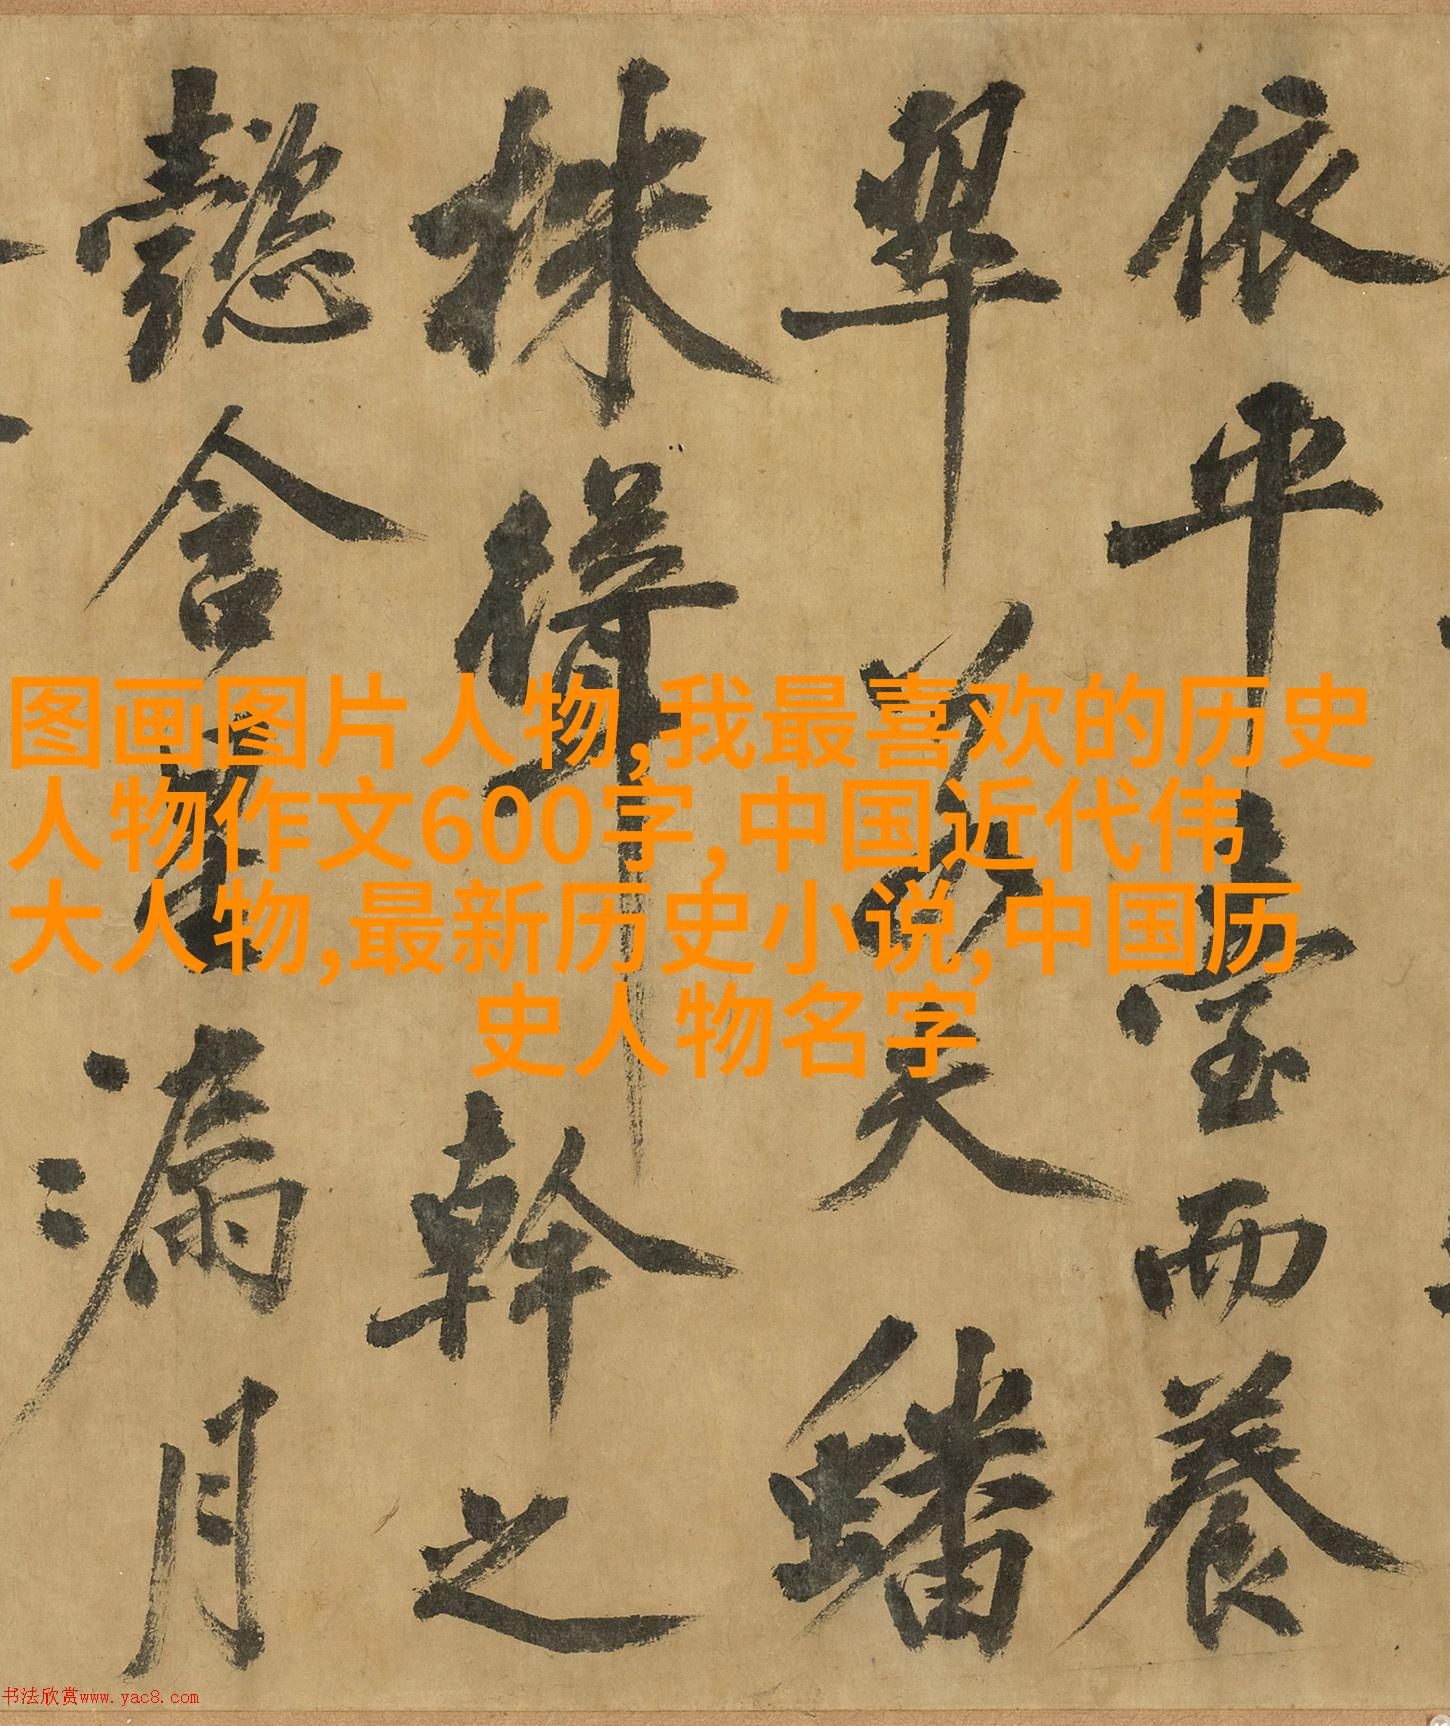 图画图片人物,我最喜欢的历史
人物作文600字,中国近代伟
大人物,最新历史小说,中国历
史人物名字
依平臺而養
翠若夫蟠
株聳幹之
懿含星漏月
书法欣赏www.yac8.com